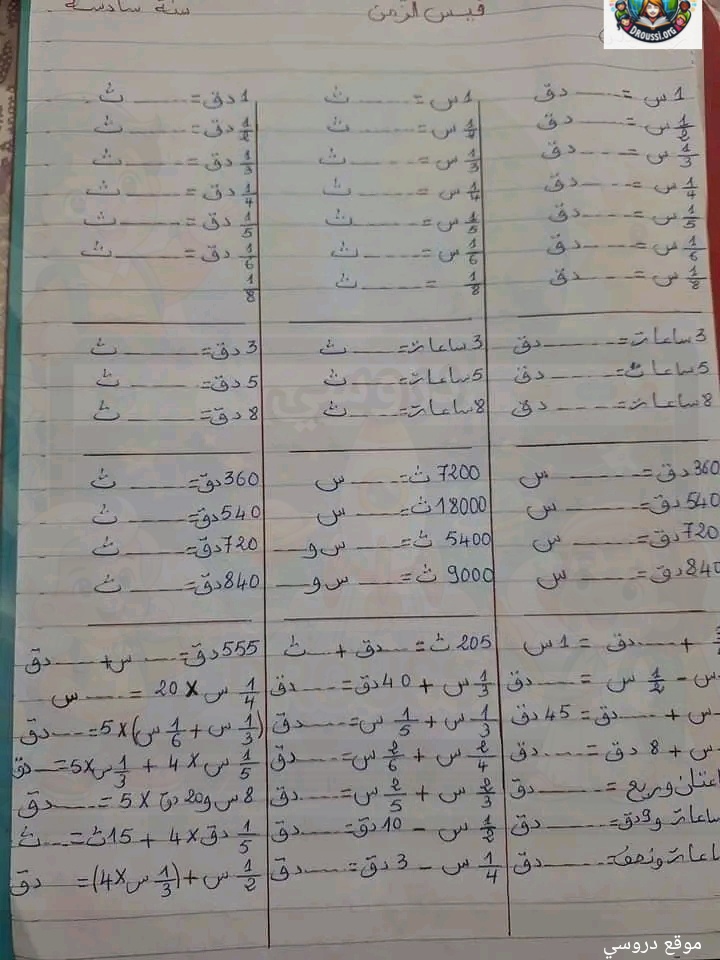 قيس الزمن
سنة سادسة
DROUSSI.ORG
1 س = ...... دق
1/2 س = ...... دق
1/3 س = ...... دق
1/4 س = ...... دق
1/5 س = ...... دق
1/6 س = ...... دق
1/8 س = ...... دق
3 ساعات = ...... دق
5 ساعات = ...... دق
8 ساعات = ...... دق
360 دق = ...... س
540 دق = ...... س
720 دق = ...... س
840 دق = ...... س
+ ...... دق = 1 س
س - 1/2 س = ...... دق
س + ...... دق = 45 دق
س + 8 دق = ...... دق
وربع = ...... دق
ساعات و9 دق = ...... دق
ونصف = ...... دق
1 س = ...... ث
1/2 س = ...... ث
1/3 س = ...... ث
1/4 س = ...... ث
1/5 س = ...... ث
1/6 س = ...... ث
1/8 = ...... ث
3 ساعات = ...... ث
5 ساعات = ...... ث
8 ساعات = ...... ث
7200 ث = ...... س
18000 ث = ...... س
5400 ث = ...... س و ......
9000 ث = ...... س و ......
205 ث = ...... دق + ...... ث
1/3 س + 40 دق = ...... دق
1/3 س + 1/5 س = ...... دق
2/4 س + 2/6 س = ...... دق
2/3 س + 2/5 س = ...... دق
1/2 س - 10 دق = ...... دق
1/4 س - 3 دق = ...... دق
1 دق = ...... ث
1/2 دق = ...... ث
1/3 دق = ...... ث
1/4 دق = ...... ث
1/5 دق = ...... ث
1/6 دق = ...... ث
1/8
3 دق = ...... ث
5 دق = ...... ث
8 دق = ...... ث
360 دق = ...... ث
540 دق = ...... ث
720 دق = ...... ث
840 دق = ...... ث
555 دق = ...... س + ...... دق
1/4 س × 20 = ...... س
(1/3 س + 1/6 س) × 5 = ...... دق
1/5 س × 4 + 1/3 س × 5 = ...... دق
8 س و20 دق × 5 = ...... دق
1/5 دق × 4 + 15 ث = ...... ث
1/2 س + (1/3 س × 4) = ...... دق
دروسي
موقع دروسي